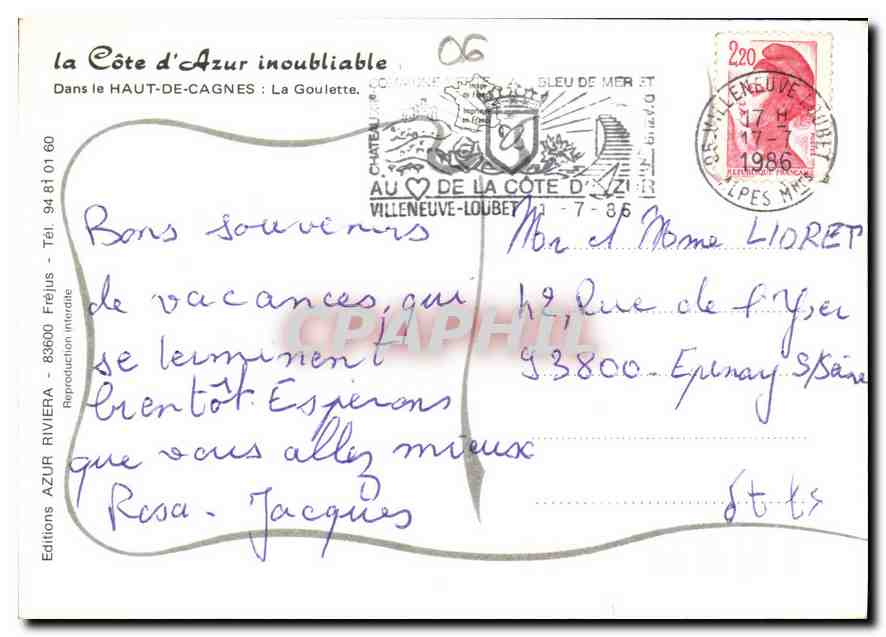 la Côte d'Azur inoubliable
Dans le HAUT-DE-CAGNES : La Goulette.
06
BLEU DE MER ET
CHATEAU
AU DE LA CÔTE D'AZUR
VILLENEUVE-LOUBET 1 -7-86
2,20
REPUBLIQUE FRANÇAISE
VILLENEUVE-LOUBET
17 H
17-7
1986
ALPES Mmes
Editions AZUR RIVIERA - 83600 Fréjus - Tél. 94 81 01 60
Reproduction interdite
Bons souvenirs
de vacances, qui
se terminent
bientôt. Espérons
que vous allez mieux
Rosa - Jacques
Mr et Mme LIORET
42, Rue de l'Yser
93800 - Epinay S/Seine
CPAPHIL